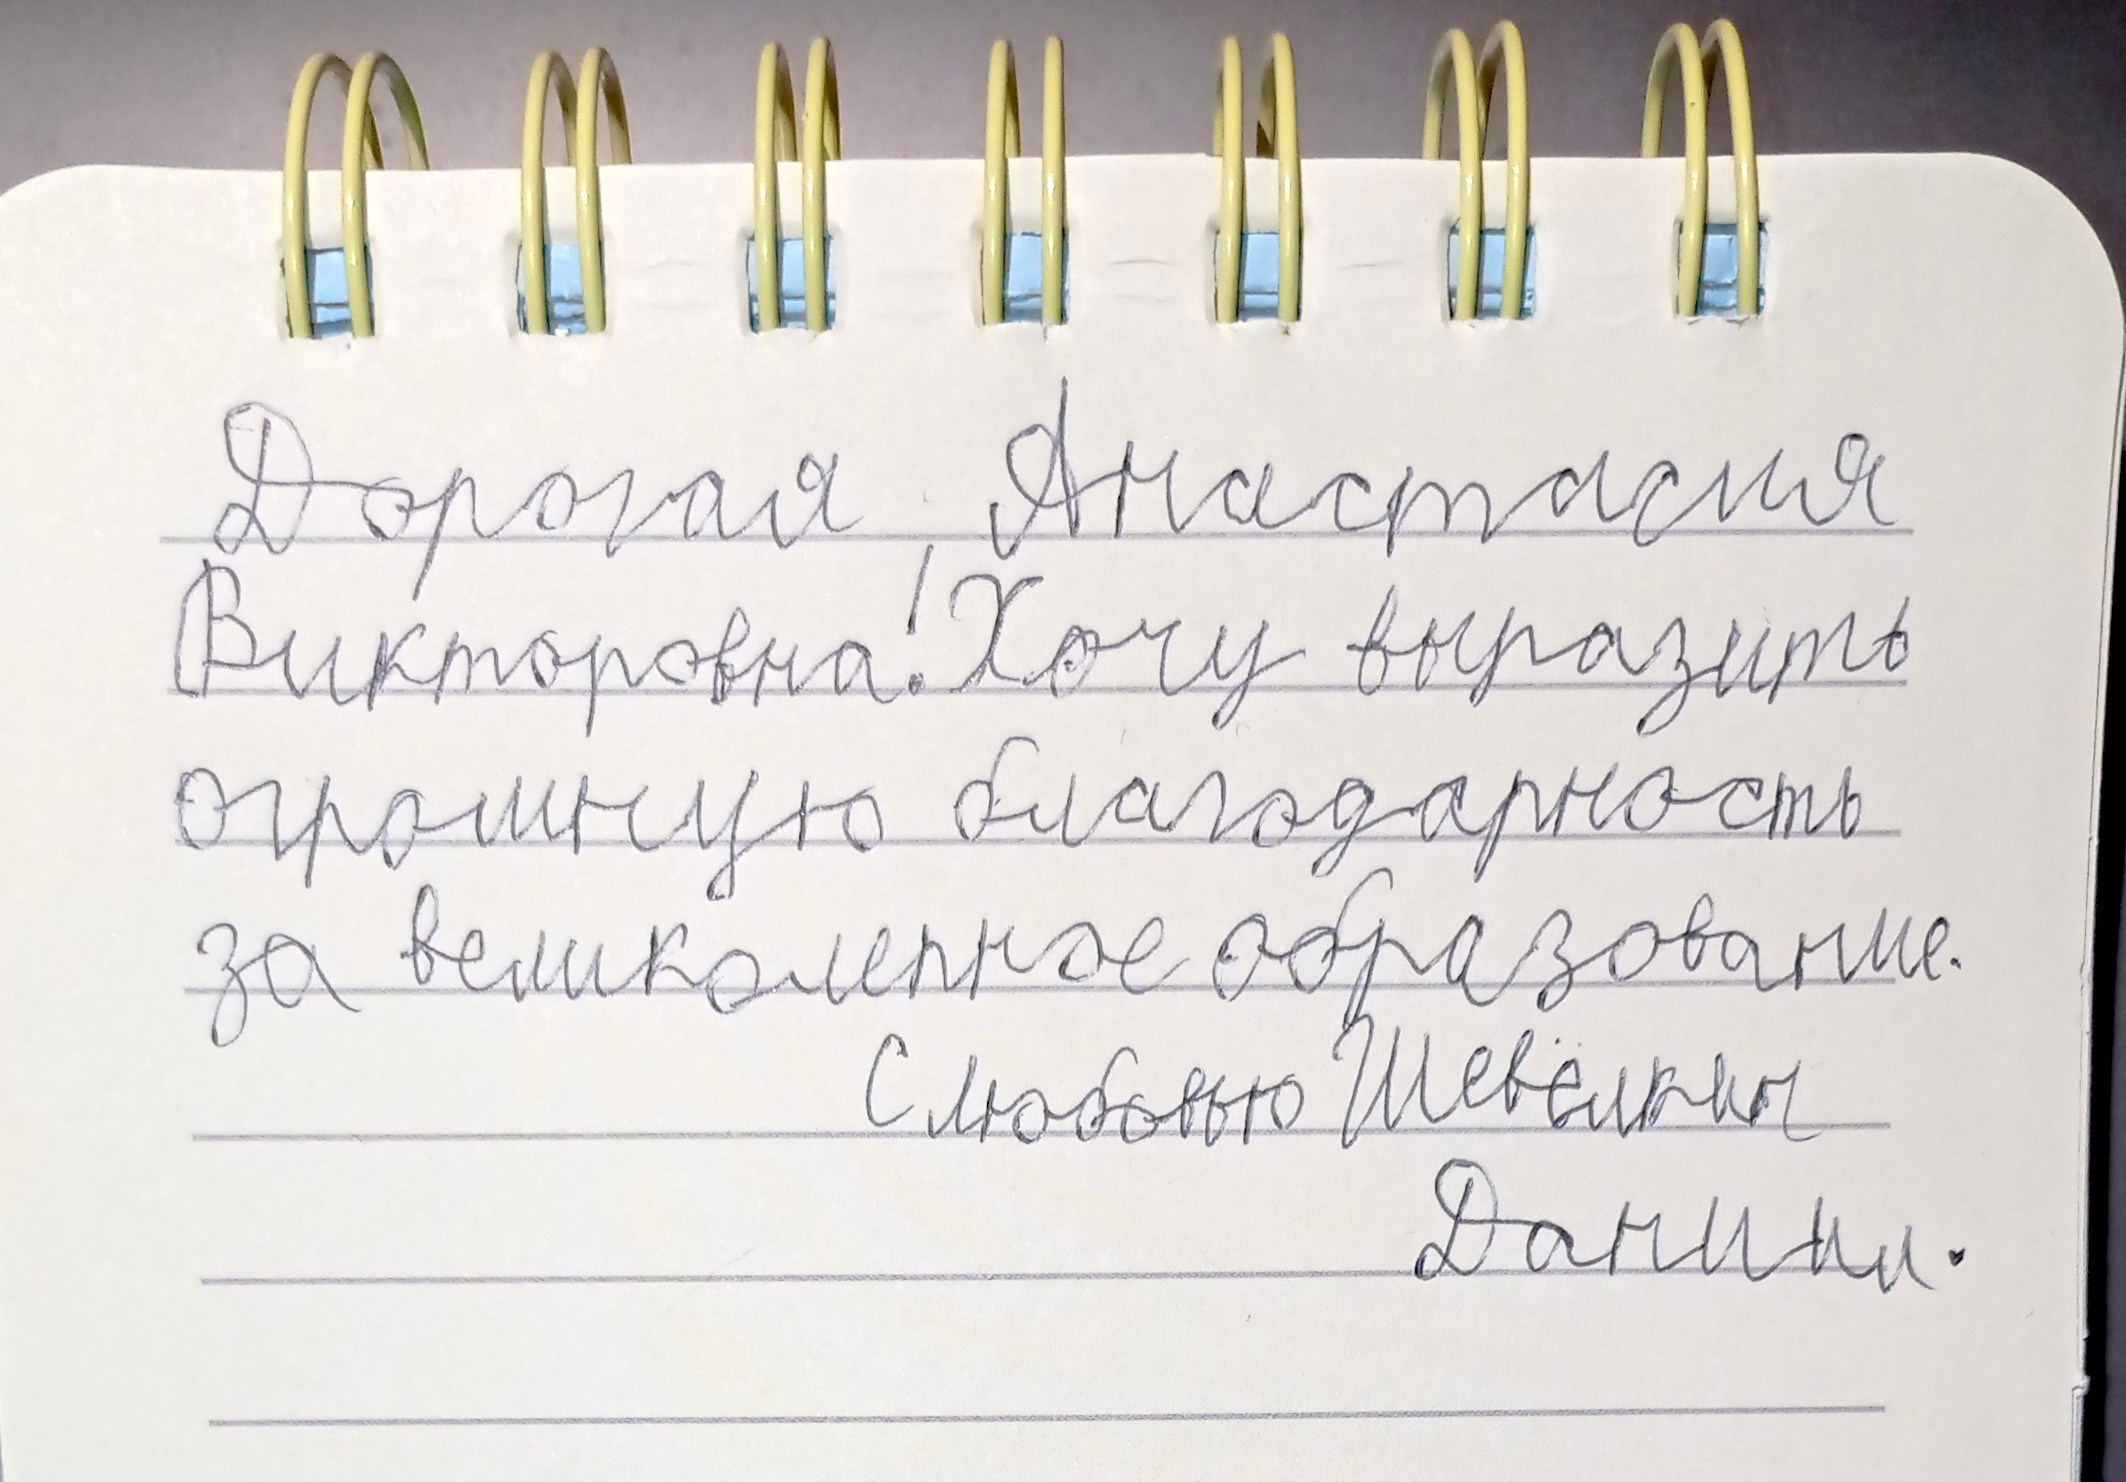 Дорогая Анастасия
Викторовна! Хочу выразить
огромную благодарность
за великолепное образование.
С любовью Шевёлкин
Даниил.